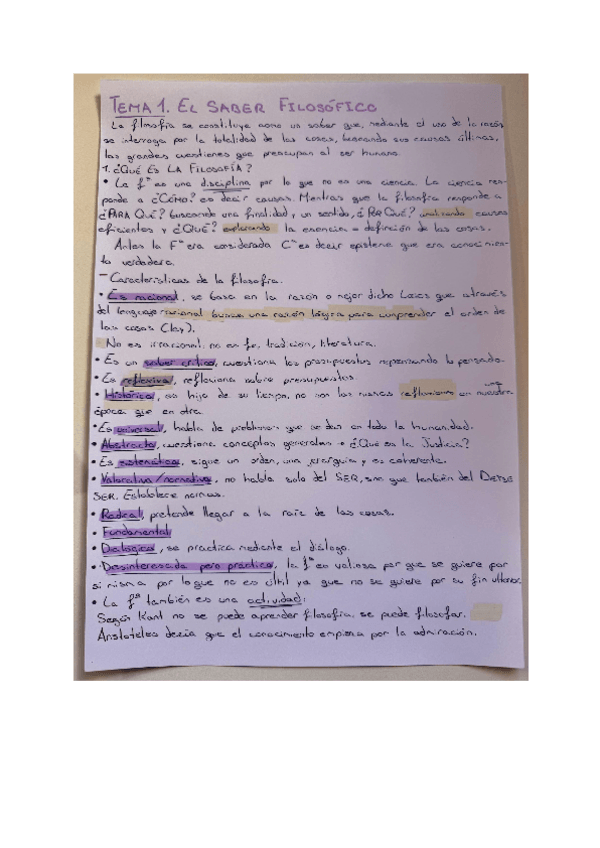 TEMA 1. EL SABER FILOSÓFICO
La filosofía se constituye como un saber que, mediante el uso de la razón
se interroga por la totalidad de las cosas, buscando sus causas últimas,
las grandes cuestiones que preocupan al ser humano.
1. ¿QUÉ ES LA FILOSOFÍA?
• La fª es una disciplina por lo que no es una ciencia. La ciencia res-
ponde a ¿CÓMO? es decir causas. Mientras que la filosofía responde a
¿PARA QUÉ? buscando una finalidad, un sentido, ¿POR QUÉ? analizando causas
eficientes y ¿QUÉ? explorando la esencia = definición de las cosas.
Antes la Fª era considerada Cª es decir episteme que era conocimien-
to verdadero.
- Características de la filosofía.
• Es racional, se basa en la razón o mejor dicho Logos que a través
del lenguaje racional busca una razón lógica para comprender el orden de
las cosas (ley).
- No es irracional: no es fe, tradición, literatura.
• Es un saber crítico, cuestiona los presupuestos repensando lo pensado.
• Es reflexiva, reflexiona sobre presupuestos.
• Histórica, es hijo de su tiempo, no son las mismas reflexiones en nuestra
época que en otra.
• Es universal, habla de problemas que se dan en toda la humanidad.
• Abstracta, cuestiona conceptos generales → ¿Qué es la Justicia?
• Es sistemática, sigue un orden, una jerarquía y es coherente.
• Valorativa/normativa, no habla solo del SER, sino que también del DEBER
SER. Establece normas.
• Radical, pretende llegar a la raíz de las cosas.
• Fundamental
• Dialógica, se practica mediante el diálogo.
• Desinteresada pero práctica, la fª es valiosa por que se quiere por
si misma por lo que no es útil ya que no se quiere por su fin ulterior.
• La fª también es una actividad:
Según Kant no se puede aprender filosofía, se puede filosofar.
Aristóteles decía que el conocimiento empieza por la admiración.